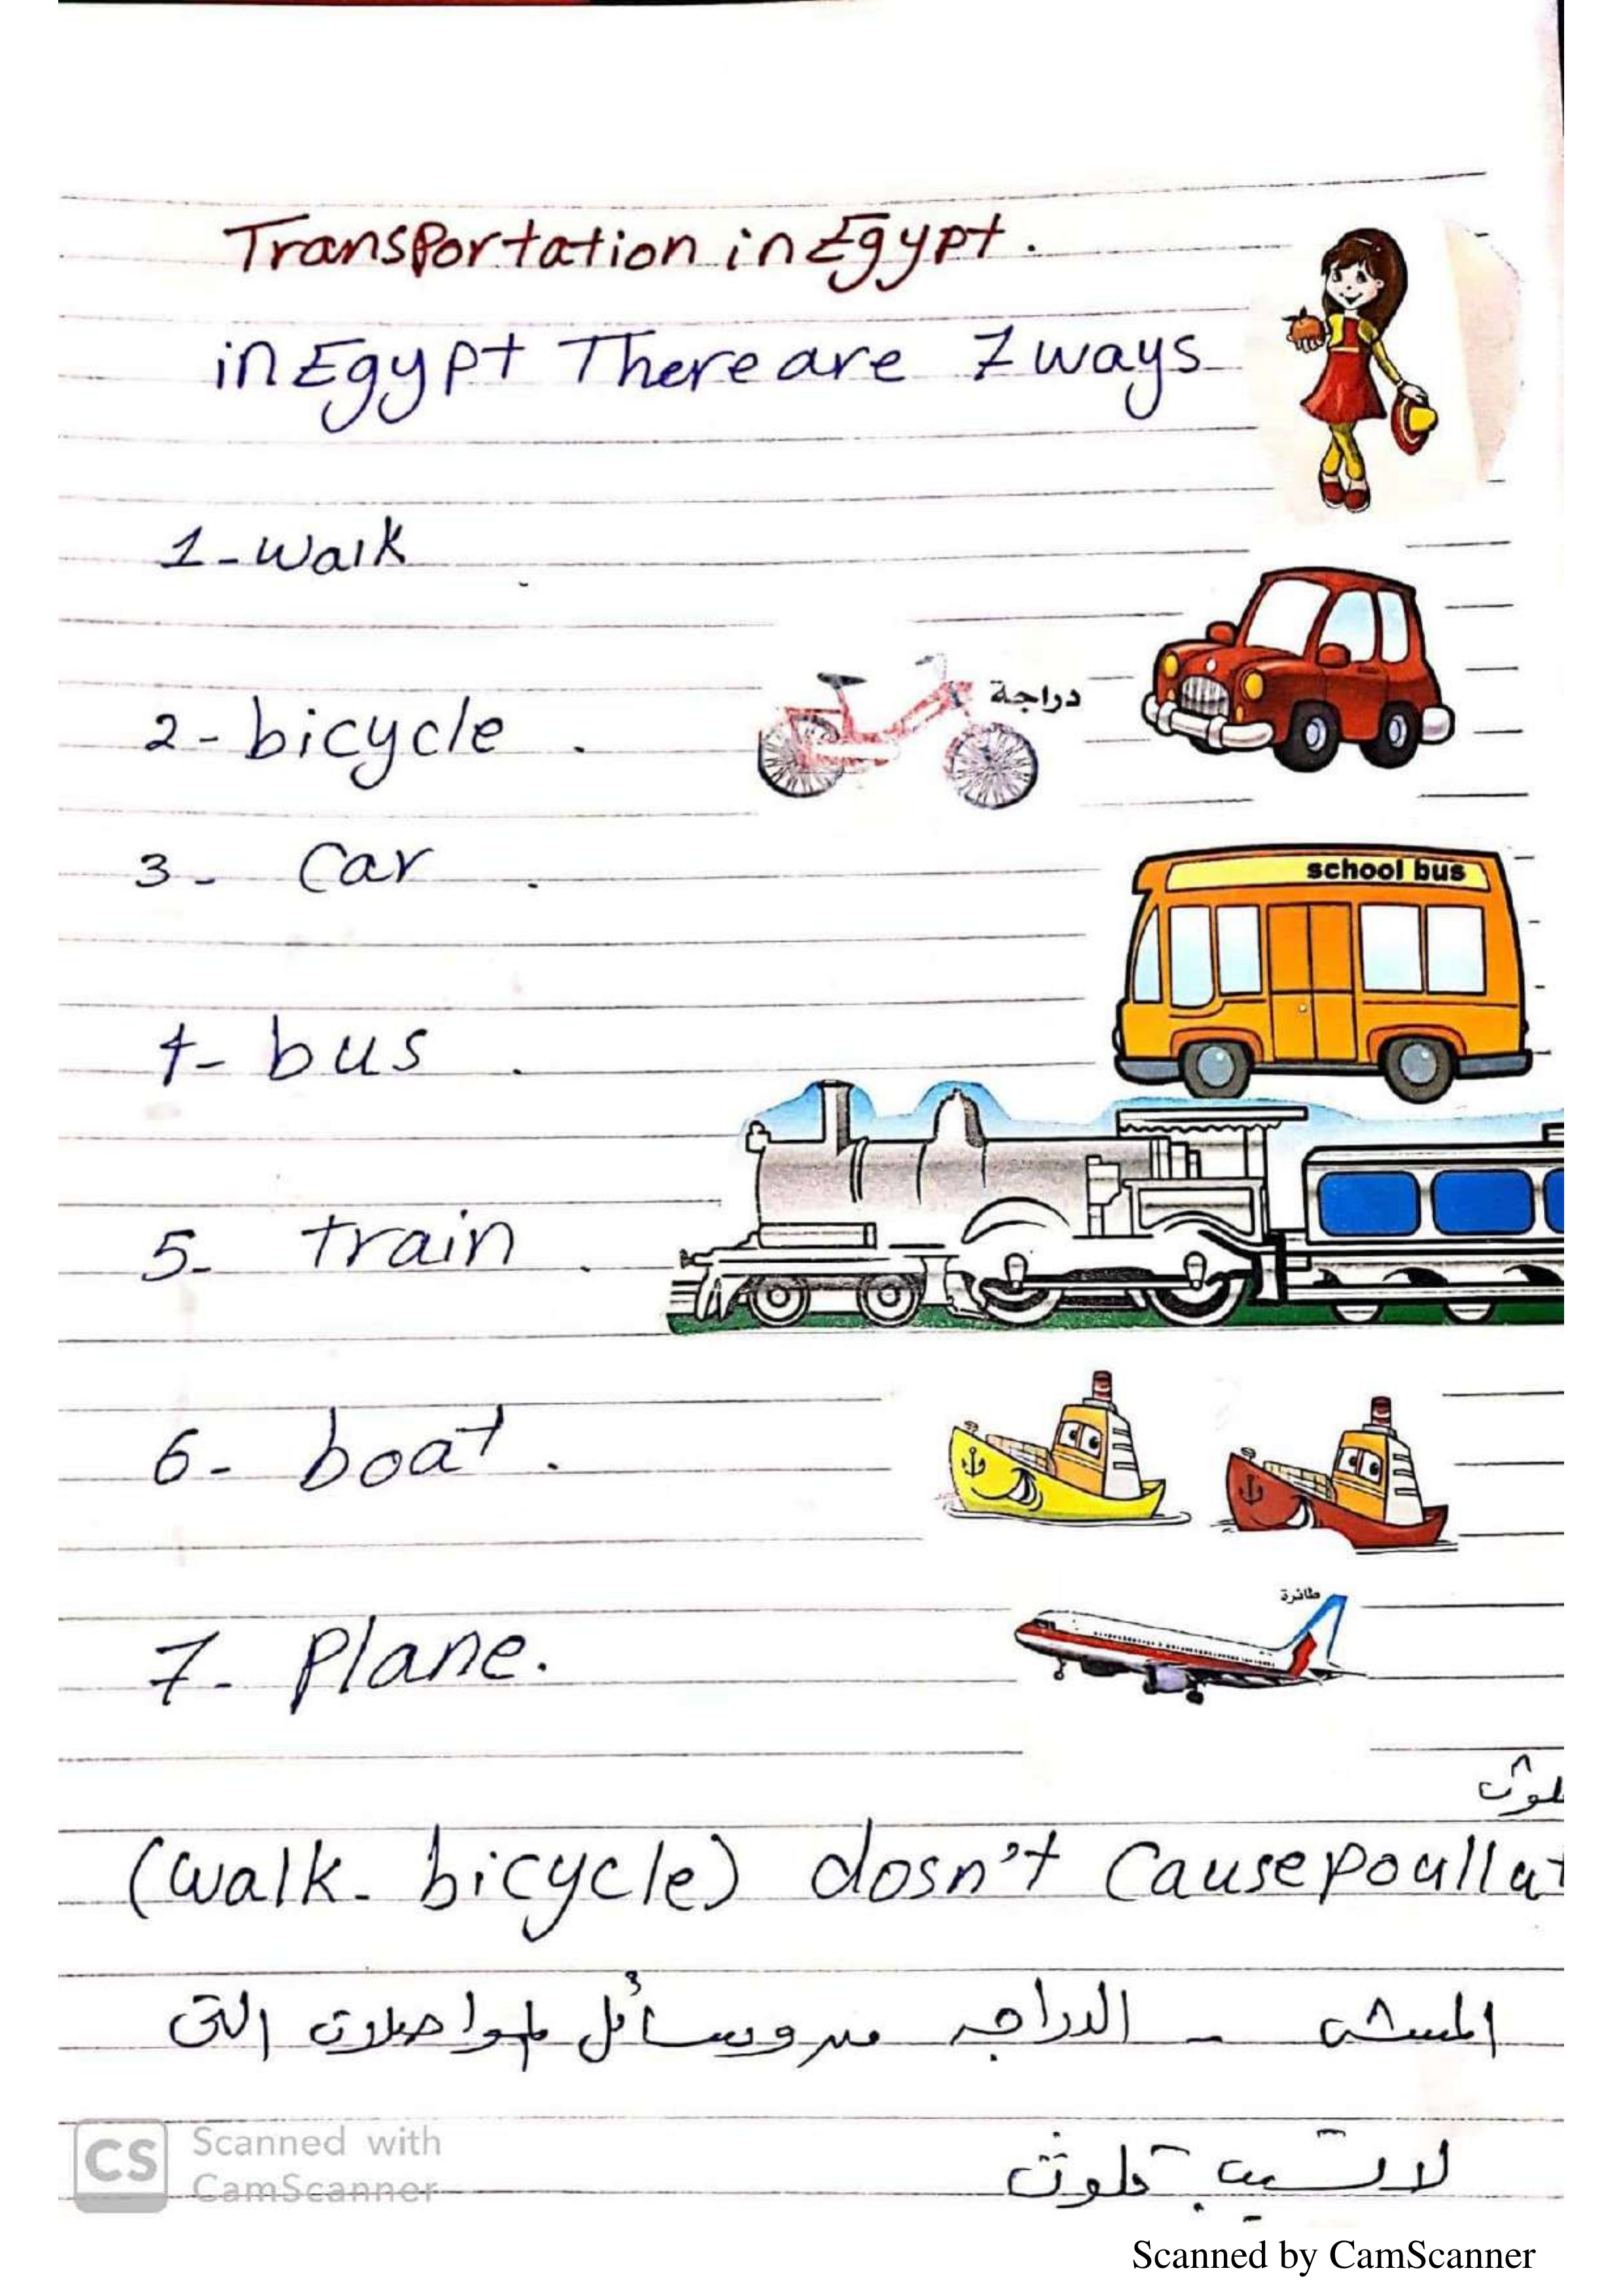 Transportation in Egypt.
in Egypt There are 7 ways
1- walk
2- bicycle .
دراجة
3- Car .
school bus
4- bus .
5- train .
6- boat .
طائرة
7- Plane.
(walk - bicycle) dosn't Cause poullut
المشى - الدراجه من وسائل المواصلات التى
لا تسبب تلوث
CS Scanned with
CamScanner
Scanned by CamScanner